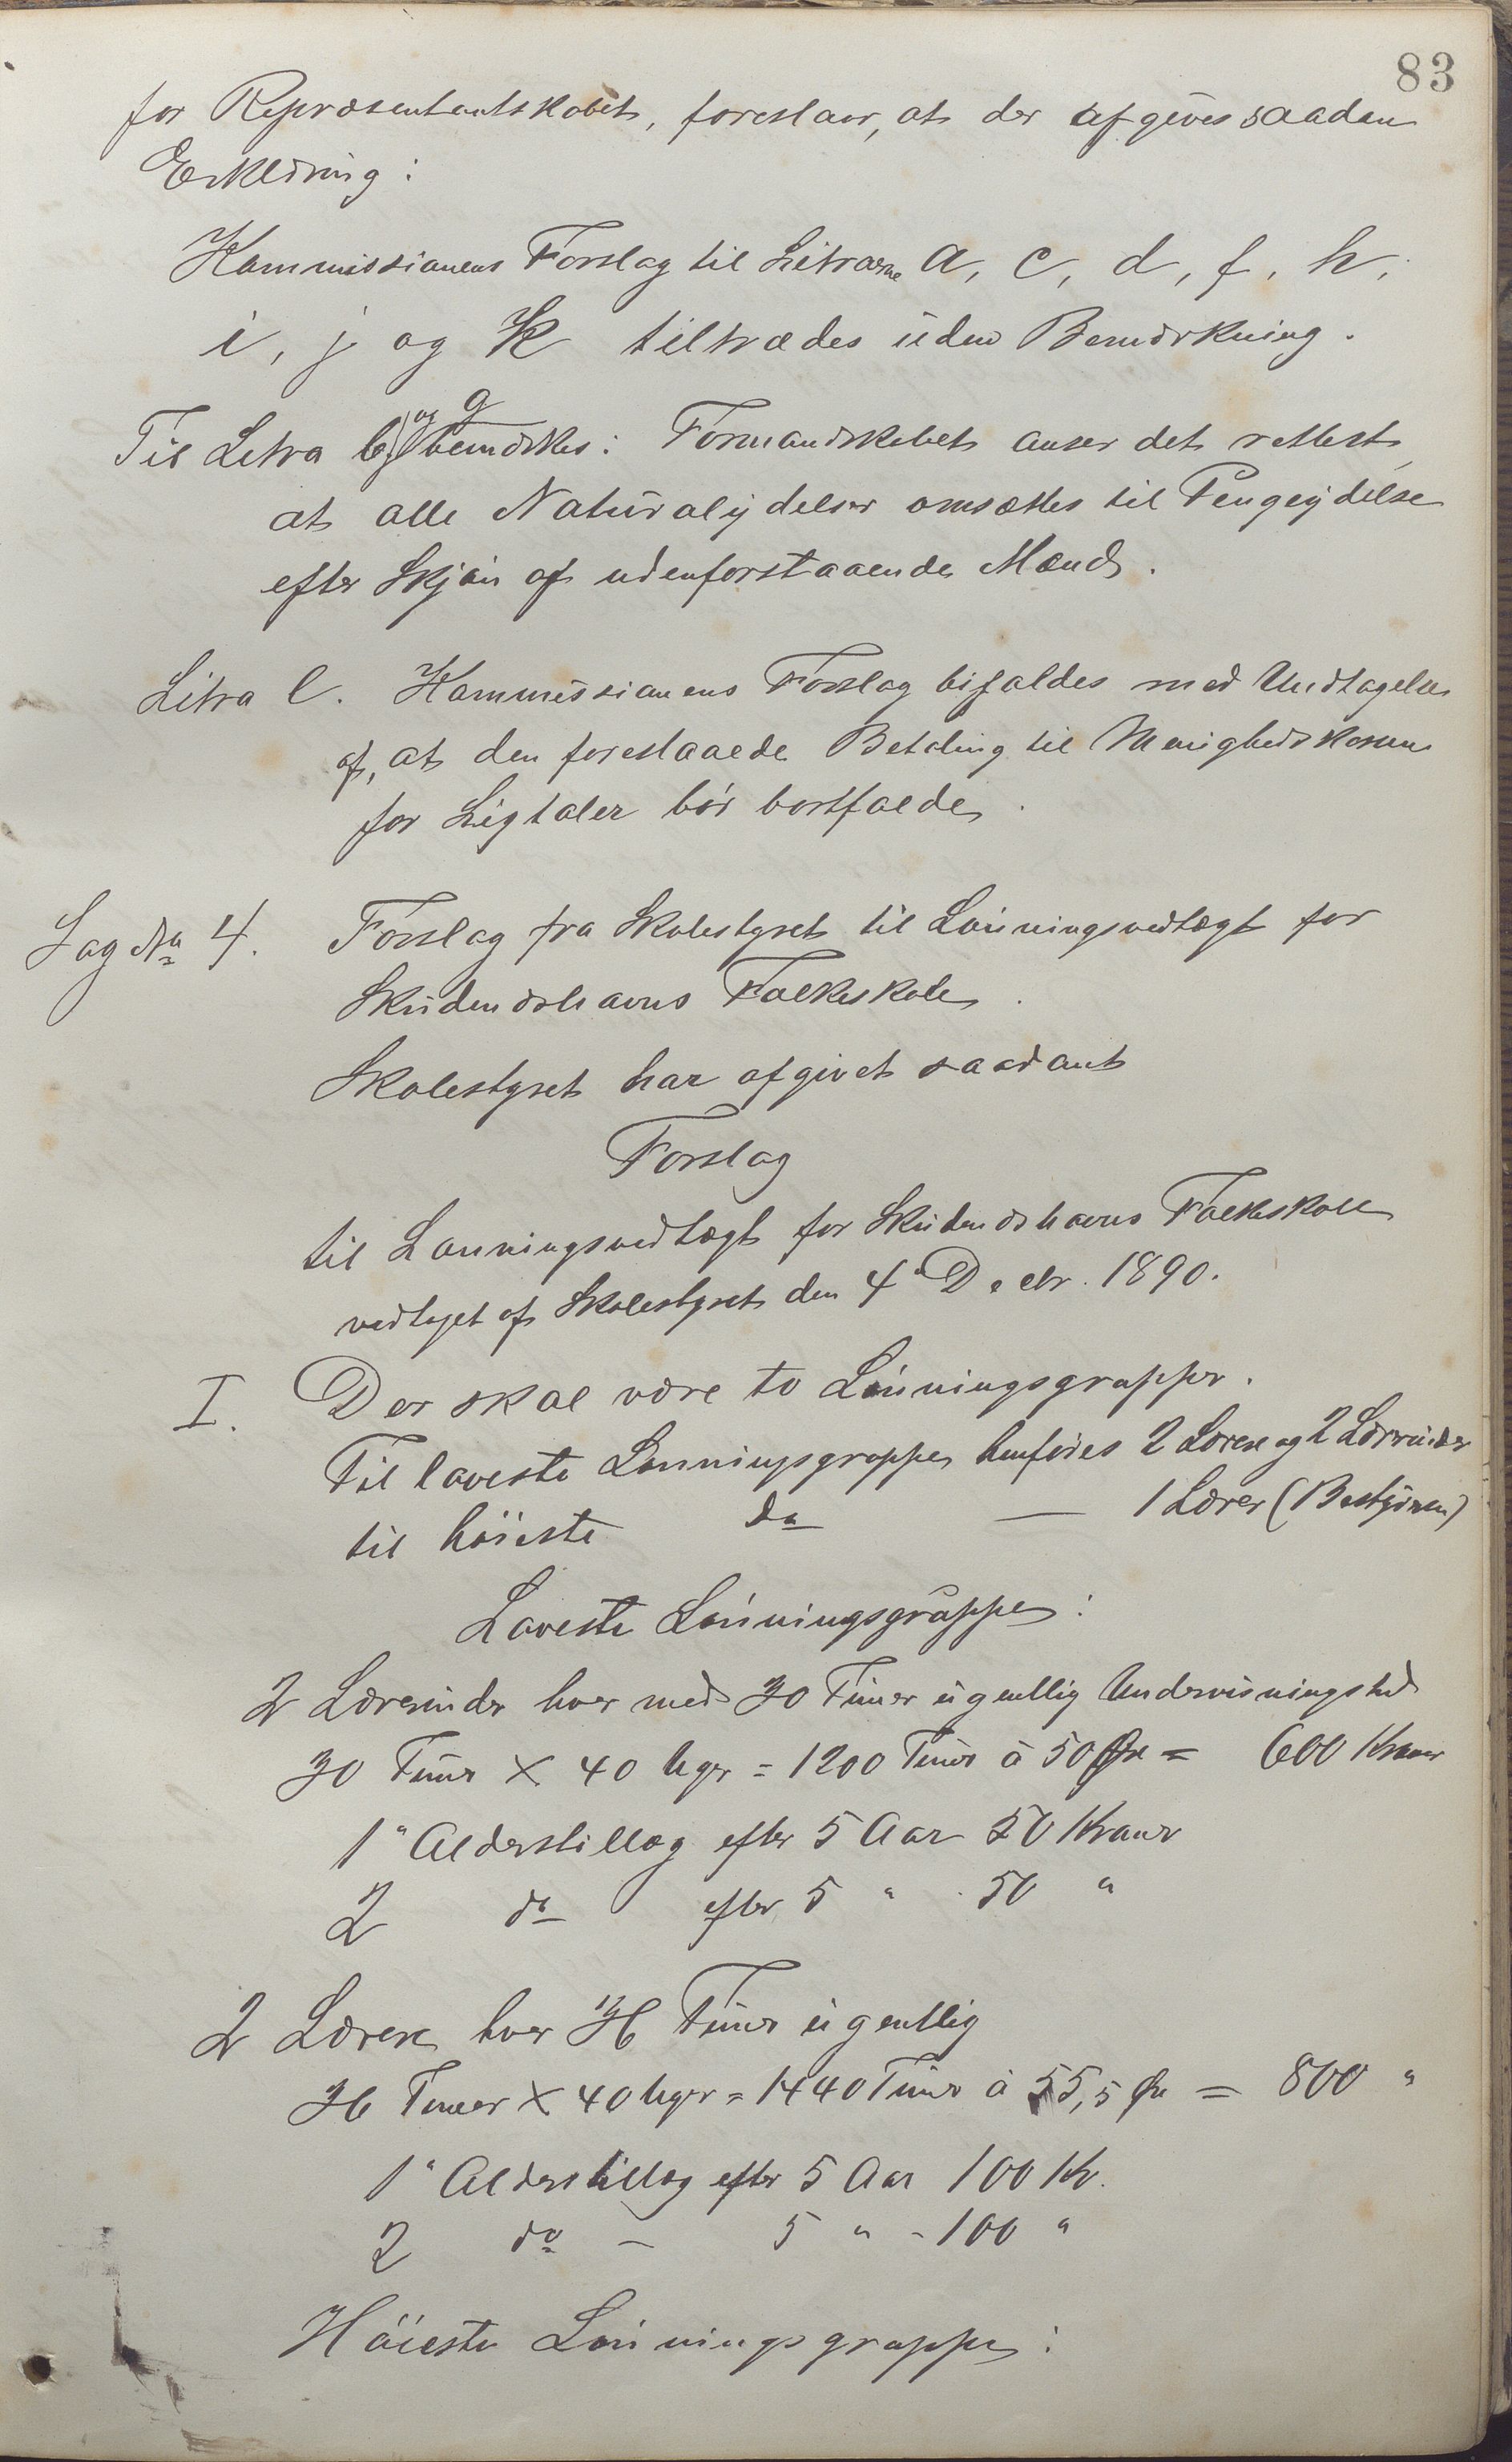 83
for Repræsentantskabet, foreslaar, at der afgives saadan
Erklæring:
Kommissionens Forslag til Litraerne a, c, d, f, h,
i, j og k tiltrædes uden Bemærkning.
Til Litra b og g bemærkes: Formandskabet anser det rettest,
at alle Naturalydelser omsættes til Pengeydelse
efter Skjøn af udenforstaaende Mænd.
Litra e. Kommissionens Forslag bifaldes med Undtagelse
af, at den foreslaaede Betaling til Menighedskassen
for Ligtaler bør bortfalde.
Sag No 4. Forslag fra Skolestyret til Lønningsvedtægt for
Skudenæshavns Folkeskole.
Skolestyret har afgivet saadant
Forslag
til Lønningsvedtægt for Skudenæshavns Folkeskole
vedtaget af Skolestyret den 4" Decbr. 1890.
I. Der skal være to Lønningsgrupper.
Til laveste Lønningsgruppe henføres 2 Lærere og 2 Lærerinder
til høieste do — 1 Lærer (Bestyreren)
Laveste Lønningsgruppe:
2 Lærerinder hver med 30 Timer ugentlig Undervisningstid
30 Timer X 40 Uger = 1200 Timer à 50 Øre = 600 Kroner
1" Alderstillæg efter 5 Aar 50 Kroner
2 do efter 5 " 50 "
2 Lærere hver 36 Timer ugentlig
36 Timer X 40 Uger = 1440 Timer à 55,5 Øre = 800 "
1" Alderstillæg efter 5 Aar 100 Kr.
2 do - 5 " - 100 "
Høieste Lønningsgruppe: